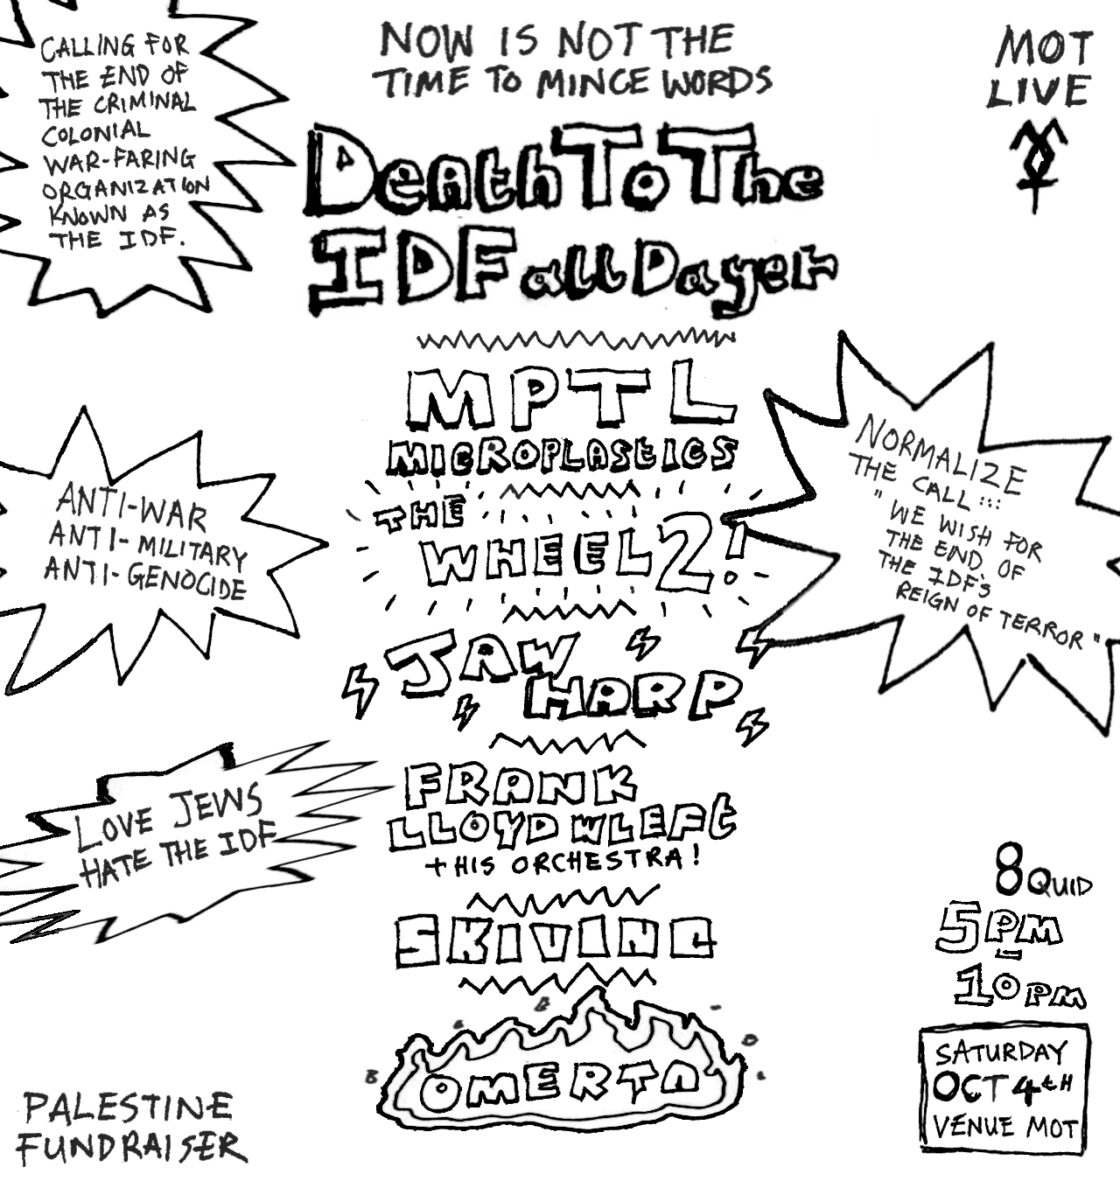 CALLING FOR
THE END OF
THE CRIMINAL
COLONIAL
WAR-FARING
ORGANIZATION
KNOWN AS
THE IDF.
NOW IS NOT THE
TIME TO MINCE WORDS
MOT
LIVE
Death To The
IDF all Dayer
MPTL
MICROPLASTICS
THE
WHEEL2!
JAW
HARP
FRANK
LLOYD WLEFT
+ HIS ORCHESTRA!
SKIVING
OMERTA
ANTI-WAR
ANTI-MILITARY
ANTI-GENOCIDE
NORMALIZE
THE CALL:::
"WE WISH FOR
THE END OF
THE IDF'S
REIGN OF TERROR"
LOVE JEWS
HATE THE IDF
8 QUID
5PM
-
10PM
SATURDAY
OCT 4TH
VENUE MOT
PALESTINE
FUNDRAISER